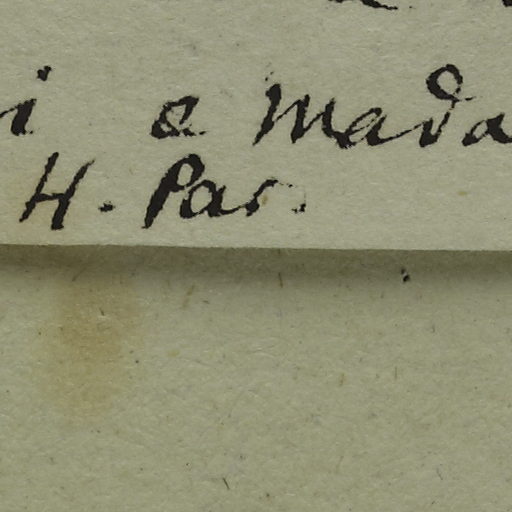 i a mada
H. Par.